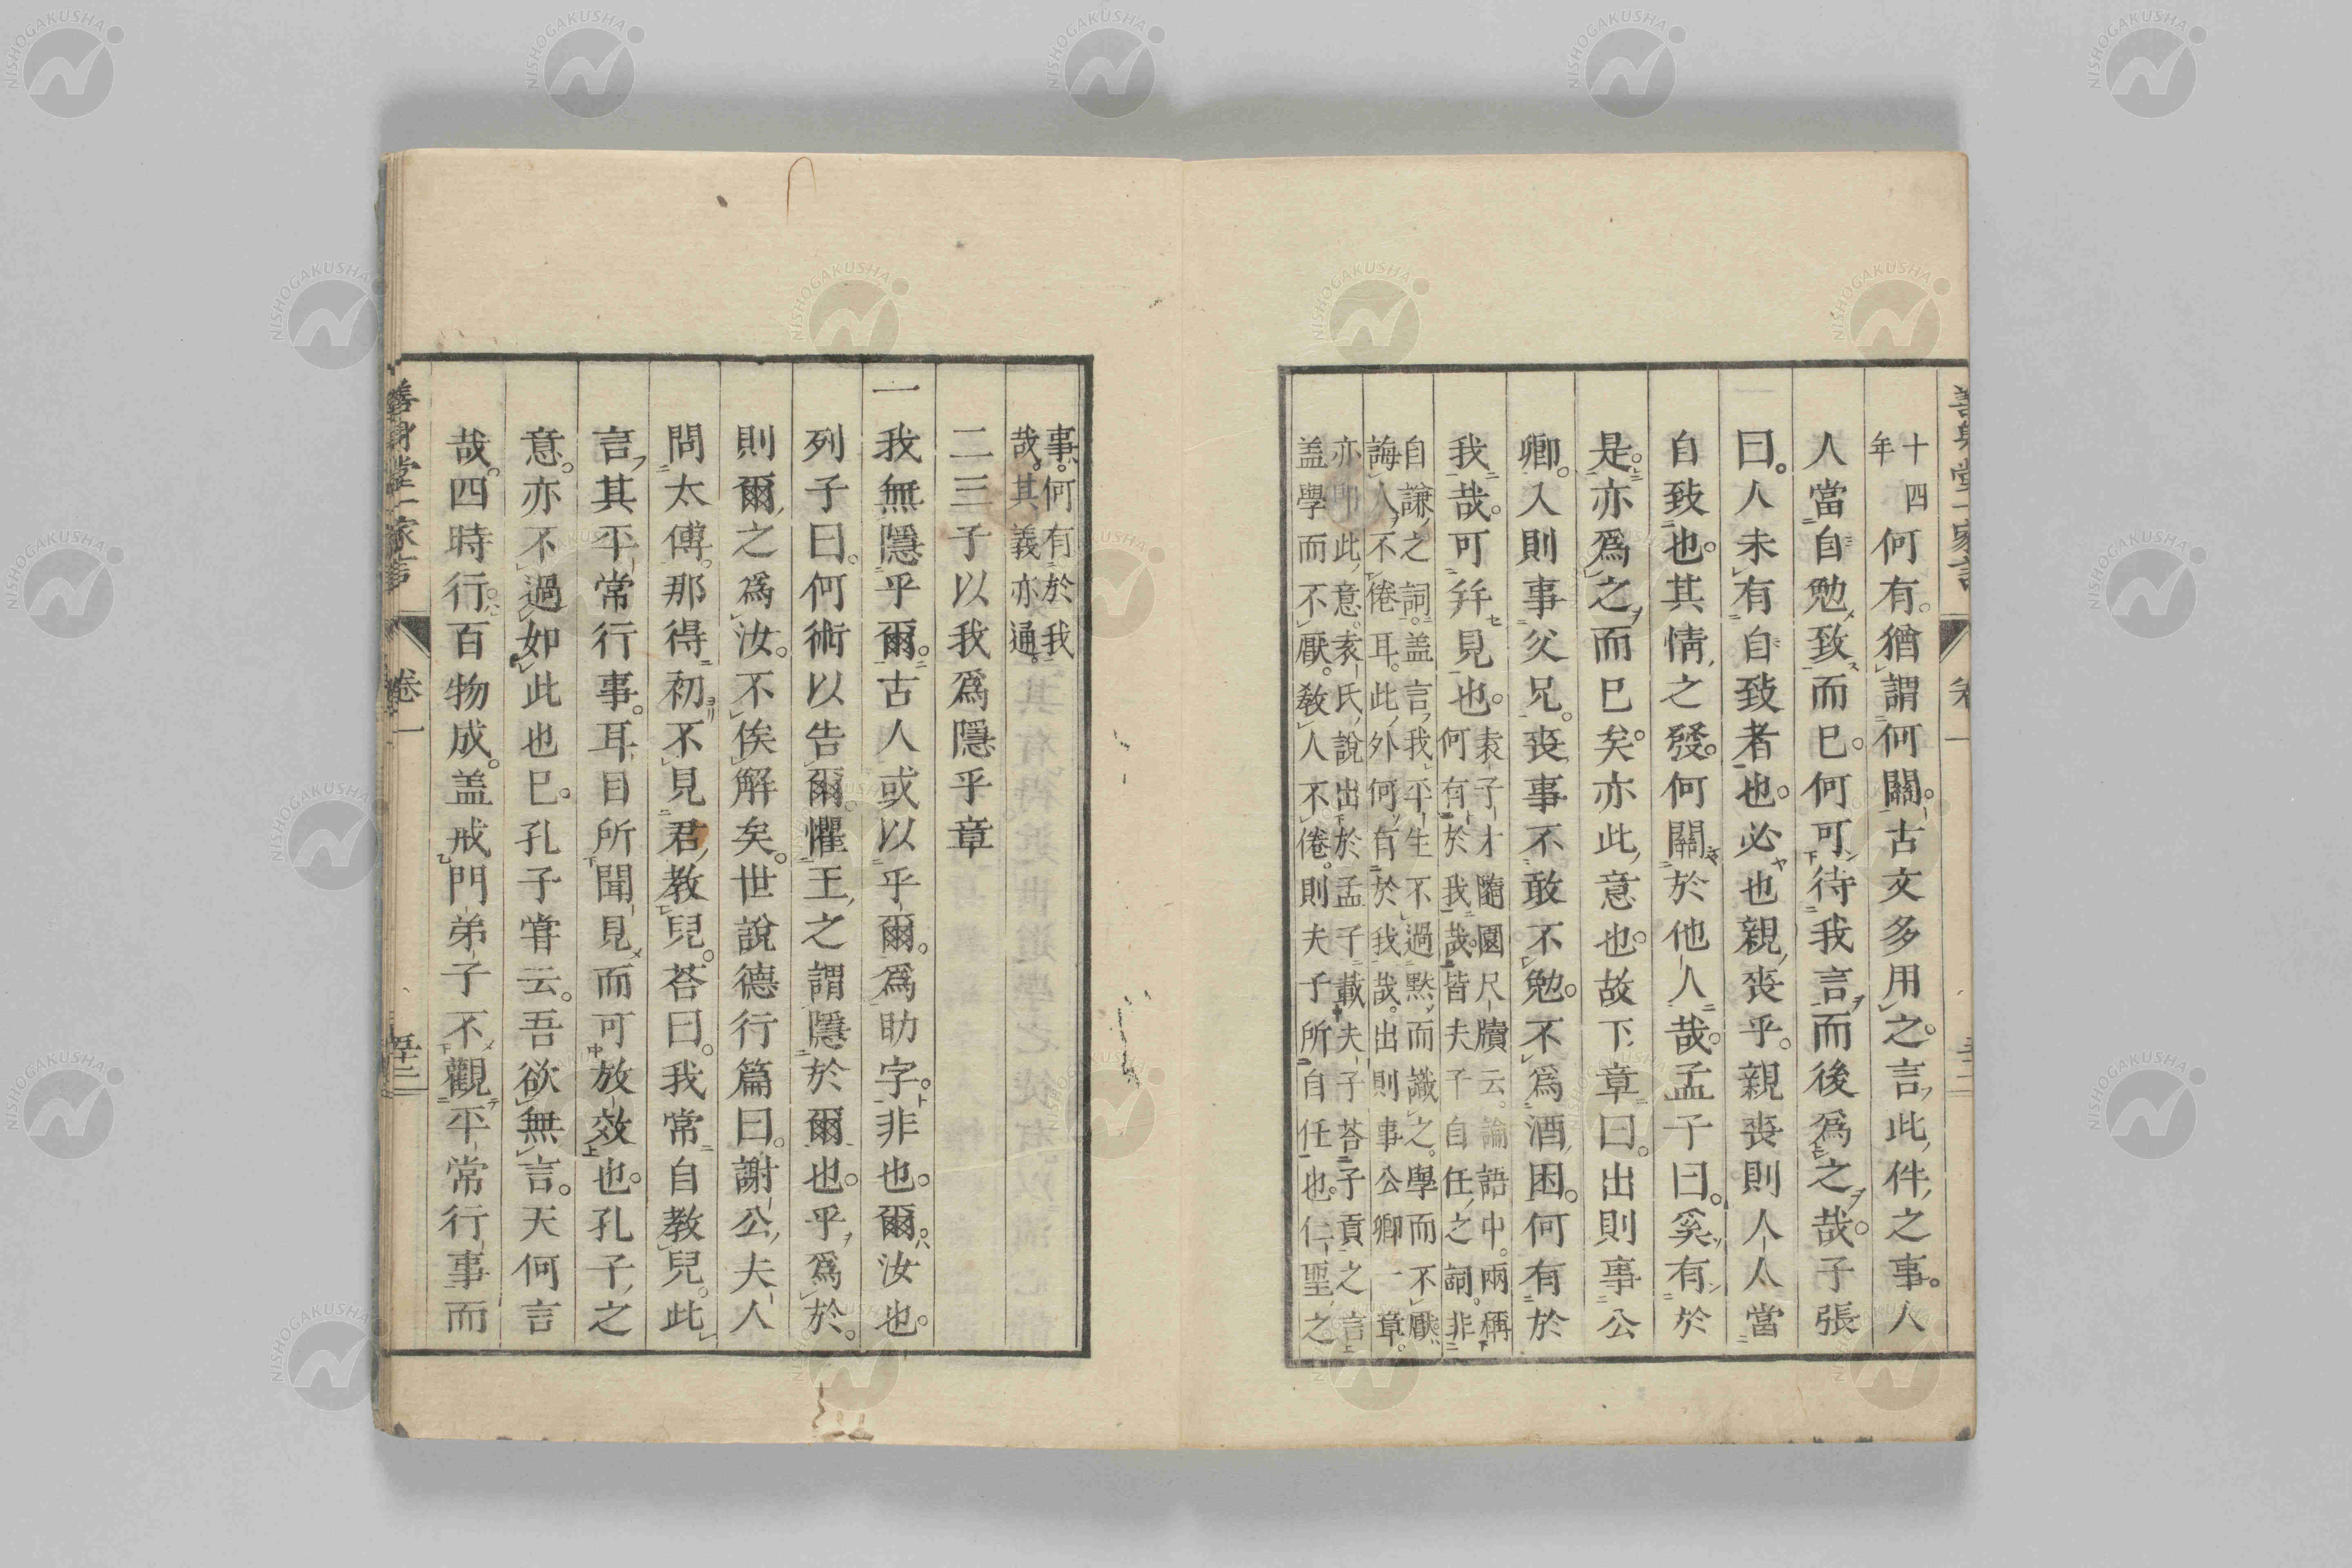 十四年何有。猶謂何關。古文多用之。言此件之事。人
人當自勉致而已。何可待我言而後爲之哉。子張
曰。人未有自致者也。必也親喪乎。親喪則人人當
自致也。其情之發。何關於他人哉。孟子曰。奚有於
是。亦爲之而已矣。亦此意也。故下章曰。出則事公
卿。入則事父兄。喪事不敢不勉。不爲酒困。何有於
我哉。可幷見也。袁子才隨園尺牘云。論語中。兩稱
何有於我哉。皆夫子自任之詞。非
自謙之詞。盖言我平生不過默而識之。學而不厭。
誨人不倦耳。此外何有於我哉。出則事公卿一章。
亦即此意。袁氏說出於孟子載夫子荅子貢之言
盖學而不厭。敎人不倦。則夫子所自任也。仁聖之
善身堂一家言 卷一
事。何有於我
哉。其義亦通。
二三子以我爲隱乎章
一我無隱乎爾。古人或以乎爾。爲助字。非也。爾。汝也。
列子曰。何術以告爾。懼王之謂隱於爾也。乎爲於。
則爾之爲汝。不俟解矣。世說德行篇曰。謝公夫人
問太傅。那得初不見君敎兒。荅曰。我常自敎兒。此
言其平常行事。耳目所聞見而可放效也。孔子之
意。亦不過如此也已。孔子甞云。吾欲無言。天何言
哉。四時行。百物成。盖戒門弟子不觀平常行事而
善身堂一家言 卷一